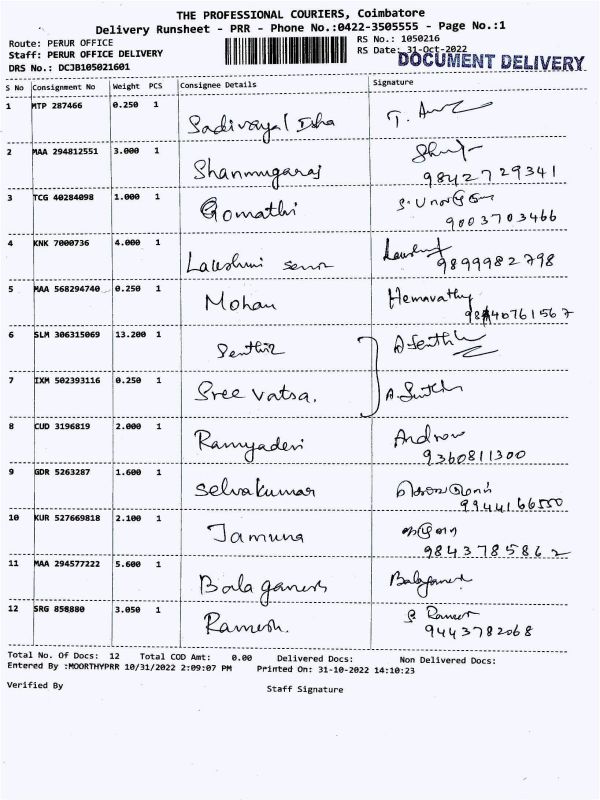 THE PROFESSIONAL COURIERS, Coimbatore
Delivery Runsheet - PRR - Phone No.:0422-3505555 - Page No.:1
Route: PERUR OFFICE RS No.: 1050216
Staff: PERUR OFFICE DELIVERY RS Date: 31-Oct-2022
DRS No.: DCJB105021601 DOCUMENT DELIVERY
S No Consignment No Weight PCS Consignee Details Signature
1 MTP 287466 0.250 1 Sadivayal Isha
2 MAA 294812551 3.000 1 Shanmugaraj
9842729341
3 TCG 40284098 1.000 1 Gomathi
9003703466
4 KNK 7000736 4.000 1 Lakshmi
9899982798
5 MAA 568294740 0.250 1 Mohan Hemavathy
6 SLM 306315069 13.200 1 Senthil A. Senthil
7 IXM 502393116 0.250 1 Sree vatsa.
8 CUD 3196819 2.000 1 Ramyadevi Andrew
9360811300
9 GDR 5263287 1.600 1 Selvakumar
9944166550
10 KUR 527669818 2.100 1 Jamuna
9843785862
11 MAA 294577222 5.600 1 Bala ganesh Balaganesh
12 SRG 858880 3.050 1 Ramesh. Ramesh
9443782068
Total No. Of Docs: 12 Total COD Amt: 0.00 Delivered Docs: Non Delivered Docs:
Entered By :MOORTHYPRR 10/31/2022 2:09:07 PM Printed On: 31-10-2022 14:10:23
Verified By Staff Signature